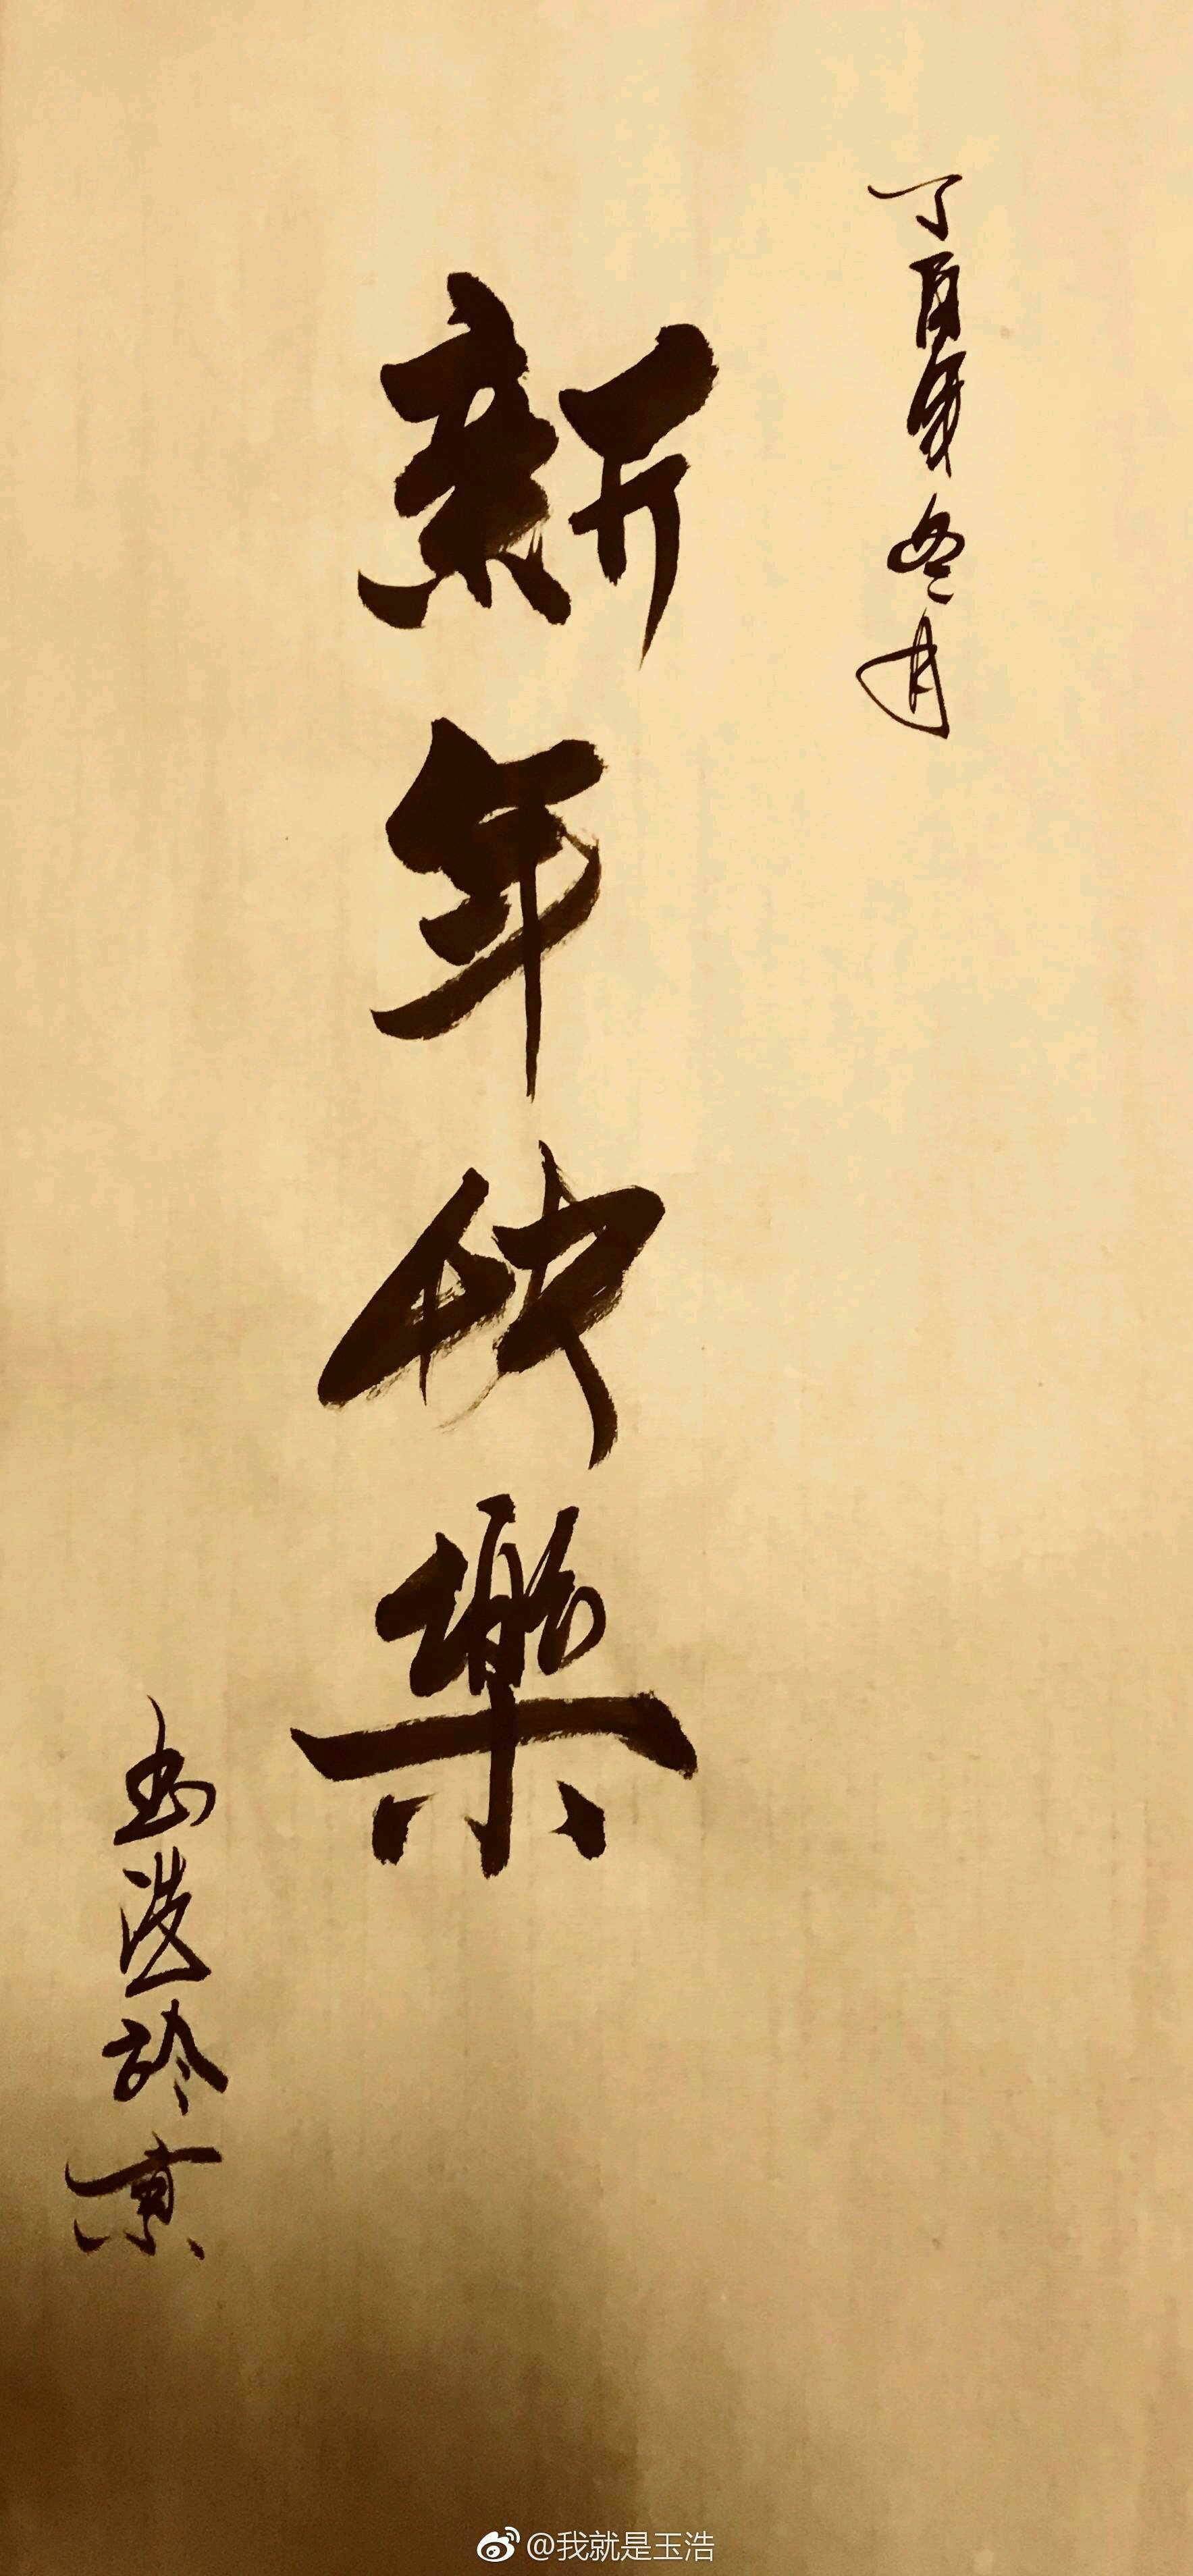 丁酉年冬月
新年快樂
玉浩於京
@我就是玉浩